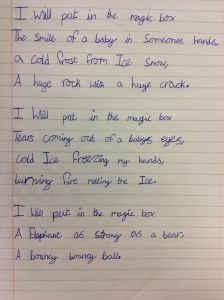 I Will put in the magic box
The Smile of a baby in Someones hands,
a cold frost from Ice Snow,
A huge rock with a huge crack.
I Will put in the magic box
Tears coming out of a babys eyes,
cold Ice freezing my hands,
burning fire melting the Ice.
I Will put in the magic box
A Elephant as strong as a bear,
A bouncy bouncy ball.